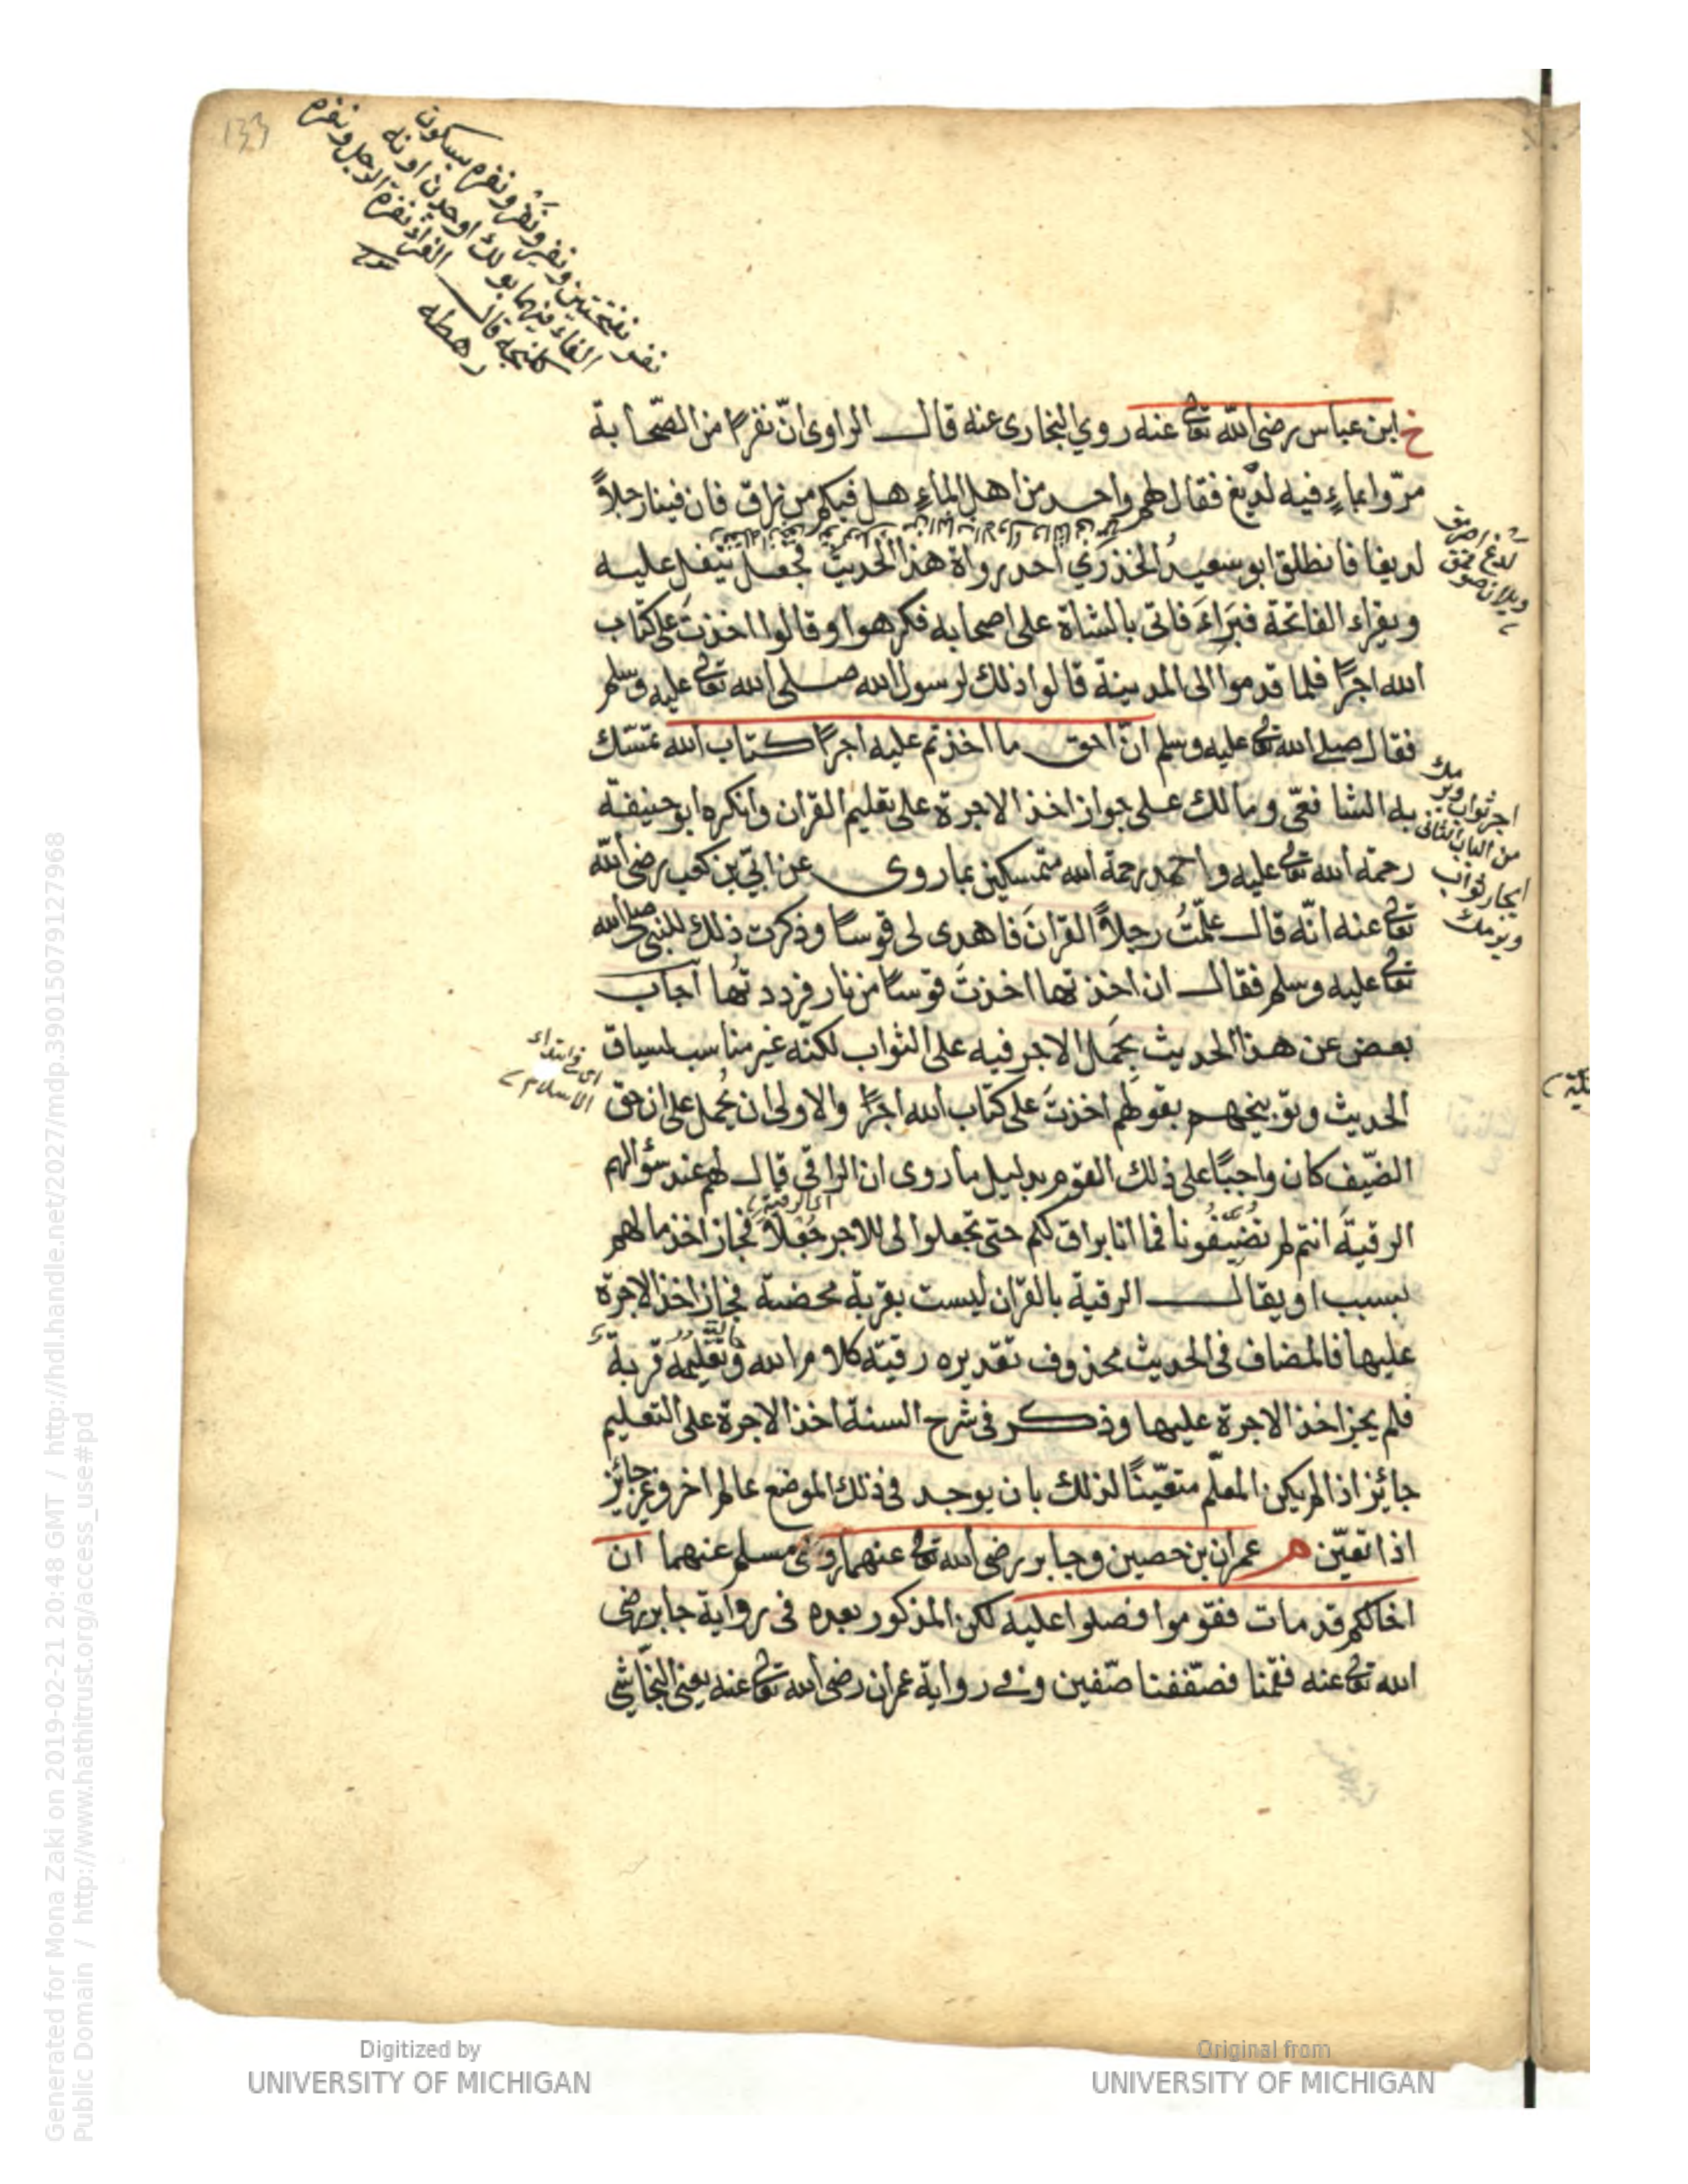 133
نفر بفتحتين ونفير ونفر ونفرة بسكون
الفاء فيهما بولك اوحدن اونه
قال الفراء نفرة الرجل ونفره
رهطه
خ ابن عباس رضى الله تعالى عنه روى البخارى عنه قال الراوى انّ نفرا من الصّحابة
مرّوا بماءٍ فيه لديغ فقال لهم واحد من اهل الماءِ هل فيكم من راق فان فينا رجلاً
لديغا فانطلق ابو سعيد الخذرَي احد رواة هذا الحديث فجعل يتفل عليه
ويقراء الفاتحة فبَراءَ فاتى بالشاة على اصحابه فكرهوا وقالوا اخذتَ على كتاب
الله اجرًا فلما قدموا الى المدينة قالوا ذلك لرسول الله صلى الله تعالى عليه وسلم
فقال صلى الله تعالى عليه وسلم انّ احق ما اخذتم عليه اجرًا كتاب الله تمسّك
به الشافعّى ومالك على جواز اخذ الاجرة على تعليم القران وانكره ابو حنيفة
رحمة الله تعالى عليه واحمد رحمة الله متمسكين بما روى عن ابّي بن كعب رضى الله
تعالى عنه انّه قال علّمتُ رجلاً القرانَ فاهدى لى قوسًا وذكرت ذلك للنبى صلى الله
تعالى عليه وسلم فقال ان اخذتها اخذتَ قوسًا من نار فرددتُها اجاب
بعض عن هذا الحديث بحمل الاجر فيه على الثواب لكنّه غير مناسب لسياق
الحديث وتوبيخهم بقولهم اخذتَ على كتاب الله اجرًا والاولى ان يُحمل على ان حق
الضّيف كان واجبًا على ذلك القوم بدليل ما روى ان الراقى قال لهم عند سؤالهم
الرقيةَ انتم لم تضُيّفُونا فما انا براق لكم حتى تجعلوا لى للاجر جُعْلاً فجاز اخذ مالهم
بسبب او يقال الرقية بالقران ليست بقربة محضة فجاز اخذ الاجرة
عليها فالمضاف فى الحديث محذوف تقديره رقية كلام الله وتعليمه قربة
فلم يجز اخذ الاجرة عليها وذكر فى شرح السنة اخذ الاجرة على التعليم
جائز اذا لم يكن المعلّم متعيّنًا لذلك بان يوجد فى ذلك الموضع عالم اخر وغير جائز
اذا تعيّن م عمران بن حصين وجابر رضى الله تعالى عنهما روى مسلم عنهما ان
اخا لكم قد مات فقوموا فصلوا عليه لكن المذكور بعده فى رواية جابر رضى
الله تعالى عنه فقمنا فصّففنا صّفين وفى رواية عمران رضى الله تعالى عنه يعنى النجّاشى
اجر ثواب ويرمك
من الباب الثانى
ايجار ثواب
ويرمك
اى فى ابتداء
الاسلام
اى الرقية
Generated for Mona Zaki on 2019-02-21 20:48 GMT / http://hdl.handle.net/2027/mdp.39015079127968
Public Domain / http://www.hathitrust.org/access_use#pd
Digitized by
UNIVERSITY OF MICHIGAN
Original from
UNIVERSITY OF MICHIGAN